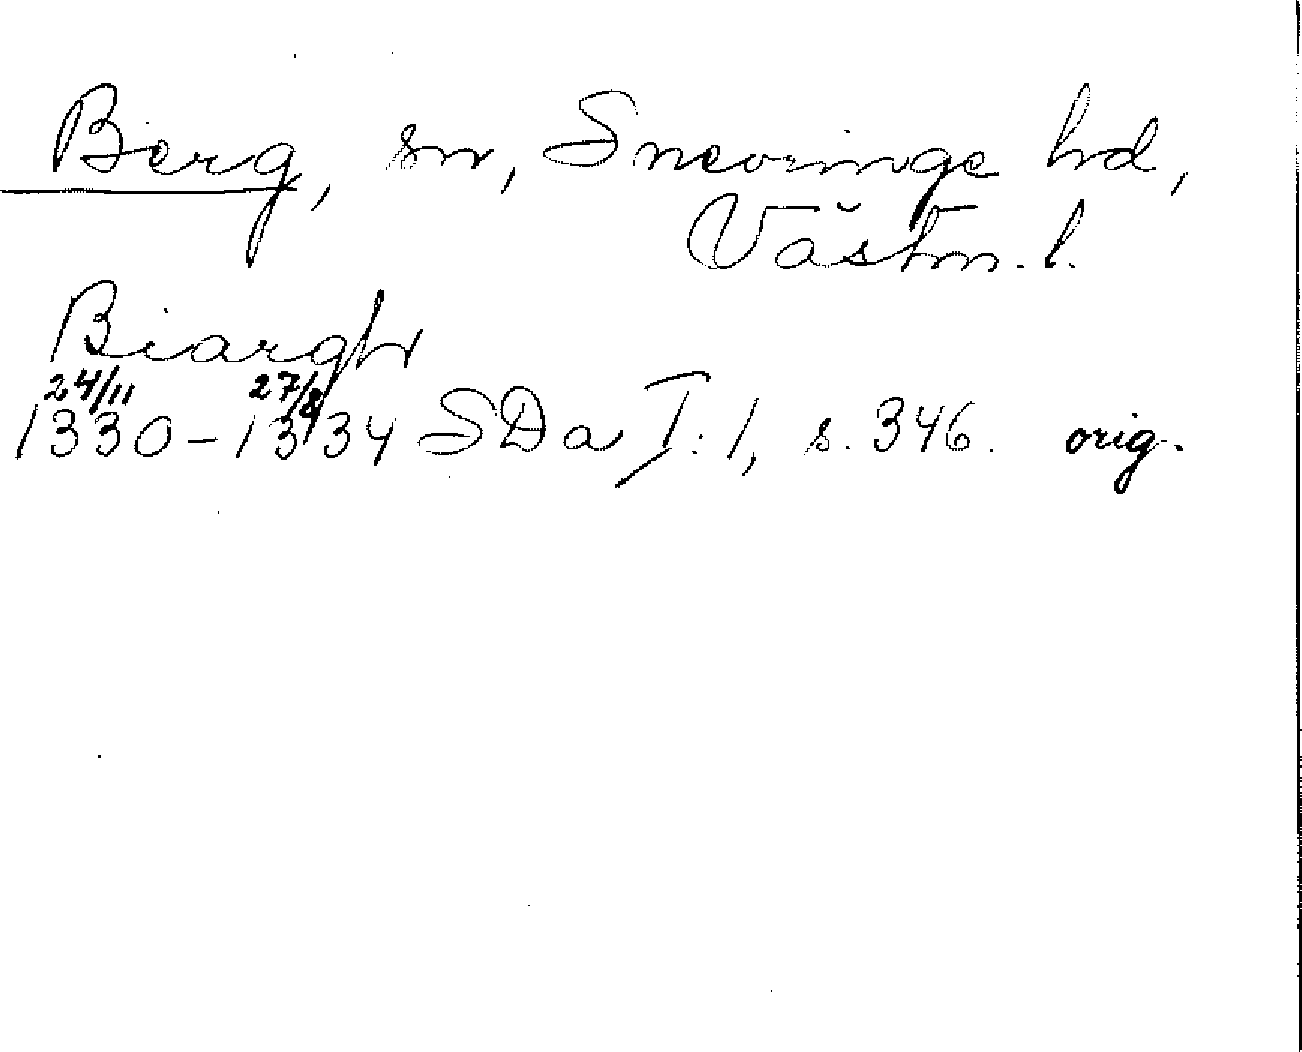 Berg, sn, Snevringe hd,
Västm. l.
Biargh
24/11 27/8
1330–1334 SDa I:1, s. 346. orig.